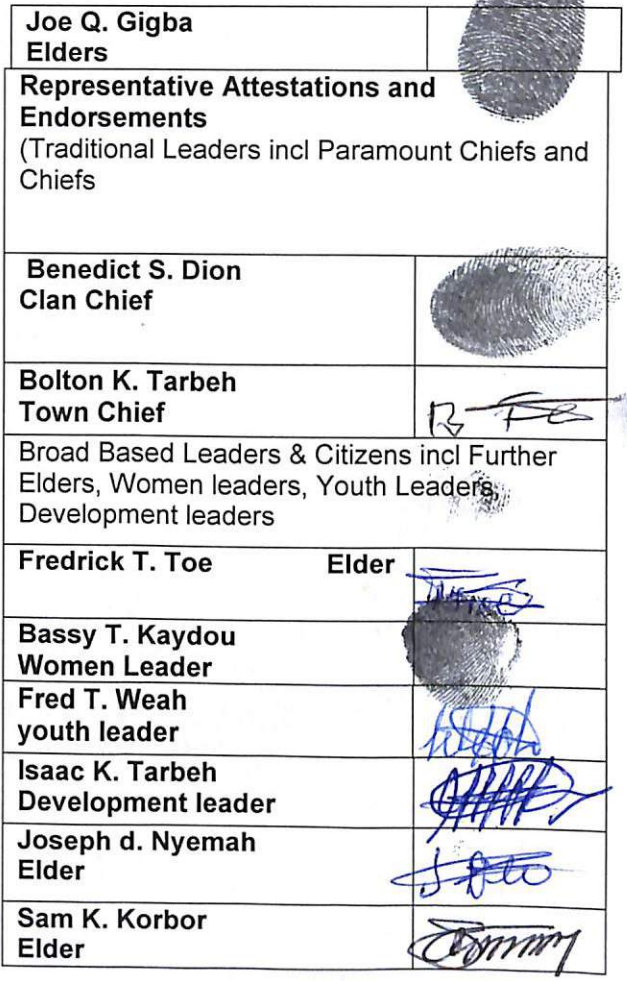 Joe Q. Gigba
Elders
Representative Attestations and
Endorsements
(Traditional Leaders incl Paramount Chiefs and
Chiefs
Benedict S. Dion
Clan Chief
Bolton K. Tarbeh
Town Chief
Broad Based Leaders & Citizens incl Further
Elders, Women leaders, Youth Leaders,
Development leaders
Fredrick T. Toe Elder
Bassy T. Kaydou
Women Leader
Fred T. Weah
youth leader
Isaac K. Tarbeh
Development leader
Joseph d. Nyemah
Elder
Sam K. Korbor
Elder